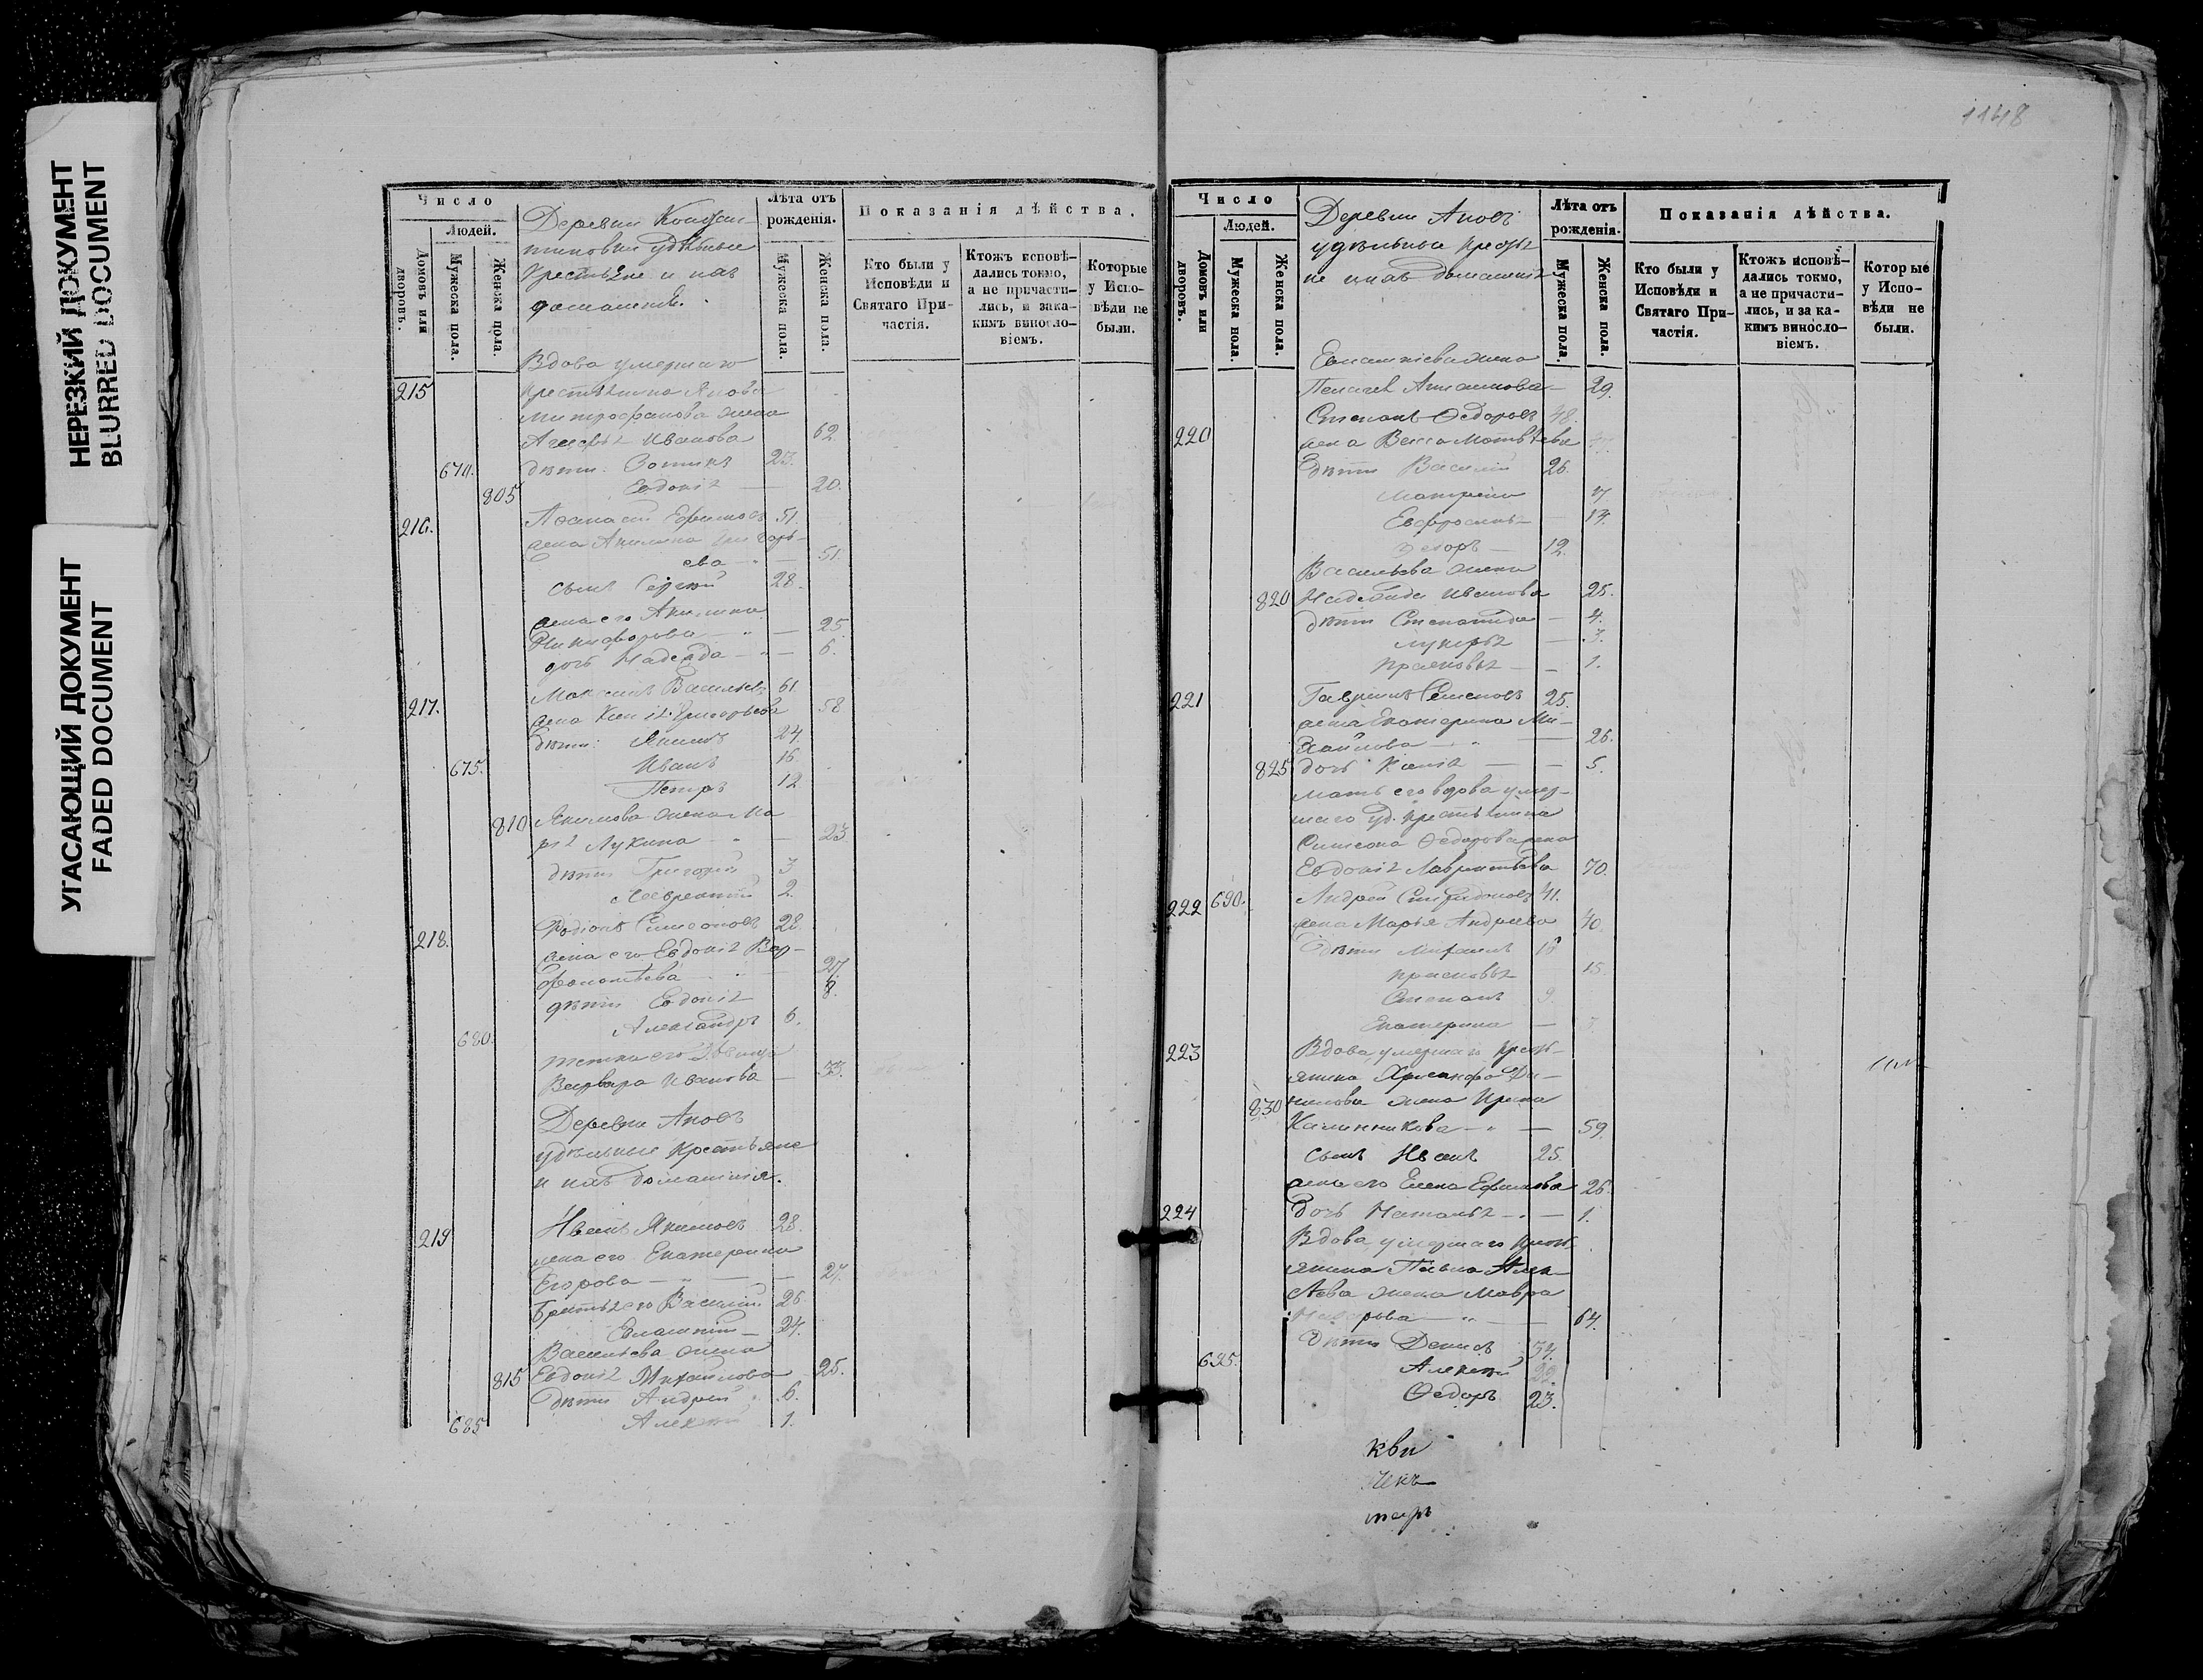 НЕРЕЗКИЙ ДОКУМЕНТ
BLURRED DOCUMENT
УГАСАЮЩИЙ ДОКУМЕНТ
FADED DOCUMENT
Число
Людей.
Домовъ или дворовъ.
Мужеска пола.
Женска пола.
Деревни Констан-
тиновки удѣльные
Крестьяне и ихъ
домашніе.
Лѣта отъ рожденія.
Мужеска пола.
Женска пола.
Показанія дѣйства.
Кто были у Исповѣди и Святаго При-
частія.
Ктожъ исповѣ-
дались токмо,
а не причасти-
лись, и за ка-
кимъ винословіемъ.
Которые у Испо-
вѣди не были.
Вдова умершаго
215 крестьянина Якова
Митрофанова жена
Агафья Иванова 62.
670. дѣти: Зотикъ 23.
805 Евдокія 20.
216. Афанасій Ефимовъ 51.
жена Акилина Григорь-
ева 51.
сынъ Сергѣй 28.
жена его Акилина
Никифорова 25.
дочь Надежда 6.
217. Максимъ Васильевъ 61.
жена Ксенія Григорьева 58
дѣти: Якимъ 24.
675. Иванъ 16.
Петръ 12.
810 Якимова жена Ма
рія Лукина 23
дѣти Григорій 3
Лаврентій 2.
218. Родіонъ Симеоновъ 28.
жена его Евдокія Вар-
фоломѣева 27
дѣти Евдокія 8.
680. Александръ 6.
тетка его дѣвица
Варвара Иванова 33.
Деревни Аповъ
удѣльные крестьяне
и ихъ домашнія.
219 Иванъ Якимовъ 28.
жена его Екатерина
Егорова 27.
Братья его Василій 26.
Евлампій 24.
Васильева жена
815 Евдокія Михайлова 25.
дѣти Андрей 6.
685 Алексѣй 1.
1148
Число
Людей.
Домовъ или дворовъ.
Мужеска пола.
Женска пола.
Деревни Аповъ
удѣльные кресть
не и ихъ домашнія
Лѣта отъ рожденія.
Мужеска пола.
Женска пола.
Показанія дѣйства.
Кто были у Исповѣди и Святаго При-
частія.
Ктожъ исповѣ-
дались токмо,
а не причасти-
лись, и за ка-
кимъ винословіемъ.
Которые у Испо-
вѣди не были.
Евлампіева жена
Пелагея 29.
220 Степанъ Ѳедоровъ 48.
жена Васса Матвѣева
дѣти Василій 26.
Матрена
Евфросинья 14.
Ѳедоръ 12.
Васильева жена
820 Надежда Иванова 25.
дѣти Степанида 4.
Лукерья 3.
Прасковья 1.
221 Гавріилъ Семеновъ 25.
жена Екатерина Ми-
хайлова 26.
825 дочь Ксенія 5.
мать его вдова умер-
шаго уд. крестьянина
Симеона Ѳедорова жена
Евдокія Лаврентьева 70.
222 690. Андрей Спиридоновъ 41.
жена Марья Андреева 40
дѣти Михаилъ 18
Прасковья 15
Степанъ 9.
Екатерина
223 Вдова умершаго кресть-
янина Хрисанфа Да-
830 нилова жена Ирина
Калинникова 59.
сынъ Иванъ 25.
жена его Елена Ефимова 26.
224 дочь Наталья 1.
Вдова умершаго крест-
янина Павла Алек-
ѣева жена Мавра
64.
дѣти Денисъ 34.
695. Алексѣй
Ѳедоръ 23.